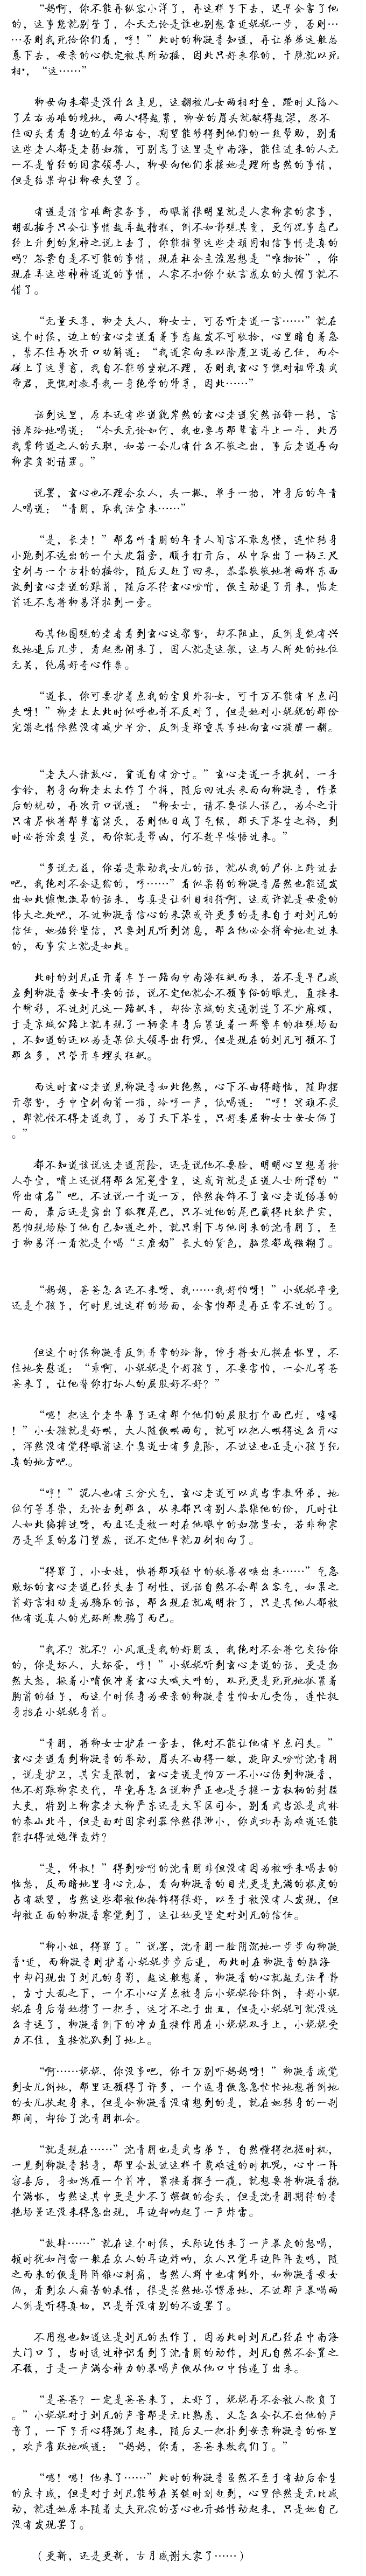 “妈啊，你不能再纵容小洋了，再这样子下去，迟早会害了他
的，这事您就别管了，今天无论是谁也别想靠近妮妮一步，否则…
…否则我死给你们看，哼！”此时的柳凝香知道，再让弟弟这般怂
恿下去，母亲的心铁定被其所动摇，因此只好来狠的，干脆就以死
相，“这……”
柳母向来都是没什么主见，这翻被儿女两相对垒，蹬时又陷入
了左右为难的境地，两人得越累，柳母的眉头就皱得越深，忍不
住回头看看身边的左邻右舍，期望能够得到他们的一丝帮助，别看
这些老人都是老弱如孺，可别忘了这里是中南海，能住进来的人无
一不是曾经的国家领导人，柳母向他们求援她是理所当然的事情，
但是结果却让柳母失望了。
有道是清官难断家务事，而眼前很明显就是人家柳家的家事，
胡乱插手只会让事情越弄越糟糕，倒不如静观其变，更何况事态已
经上升到的鬼神之说上去了，你能指望这些老顽固相信事情是真的
吗？答案自是不可能的事情，现在社会主流思想是“唯物论”，你
现在弄这些神神道道的事情，人家不扣你个妖言惑众的大帽子就不
错了。
“无量天尊，柳老夫人，柳女士，可否听老道一言……”就在
这个时候，边上的玄心老道看着事态越发不可收拾，心里暗自着急
，禁不住再次开口劝解道：“我道家向来以除魔卫道为己任，而今
碰上了这孽畜，我自不能够坐视不理，否则我玄心予愧对祖师真武
帝君，更愧对教导我一身绝学的师尊，因此……”
话到这里，原本还有些道貌岸然的玄心老道突然话锋一转，言
语岸冷地喝道：“今天无论如何，我也要与那孽畜斗上一斗，此乃
我辈修道之人的天职，如若一会儿有什么不敬之出，事后老道再向
柳家负荆请罪。”
说罢，玄心也不理会众人，头一撇，单手一抬，冲身后的年青
人喝道：“青朋，取我法宝来……”
“是，长老！”那名叫青朋的年青人闻言不敢怠慢，连忙转身
小跑到不远出的一个大皮箱旁，顺手打开后，从中取出了一柄三尺
宝剑与一个古朴的摇铃，随后又赶了回来，恭恭敬敬地将两样东西
放到玄心老道的跟前，随后不待玄心吩咐，便主动退了开来，临走
前还不忘将柳易洋招到一旁。
而其他围观的老者看到玄心这架势，却不阻止，反倒是饶有兴
致地退后几步，看起热闹来了，国人就是这般，这与人所处的地位
无关，纯属好奇心作祟。
“道长，你可要护着点我的宝贝外孙女，可千万不能有半点闪
失呀！”柳老太太此时似呼也并不反对了，但是她对小妮妮的那份
宠溺之情依然没有减少半分，反倒是郑重其事地向玄心提醒一翻。
“老夫人请放心，贫道自有分寸。”玄心老道一手执剑，一手
拿铃，躬身向柳老太太作了个揖，随后回过头来面向柳凝香，作最
后的规劝，再次开口说道：“柳女士，请不要误人误己，为今之计
只有尽快将那孽畜消灭，否则他日成了气候，那天下苍生之祸，到
时必将涂炭生灵，而你就是帮凶，何不趁早悔悟过来。”
“多说无益，你若是敢动我女儿的话，就从我的尸体上跨过去
吧，我绝对不会退缩的，哼……”看似柔弱的柳凝香居然也能迸发
出如此慷慨激昂的话来，当真是让刮目相待啊，这或许就是母爱的
伟大之处吧，不过柳凝香信心的来源或许更多的是来自于对刘凡的
信任，她始终坚信，只要刘凡听到消息，那么他必会拼命地赶过来
的，而事实上就是如此。
此时的刘凡正开着车子一路向中南海狂飙而来，若不是早已感
应到柳凝香母女平安的话，说不定他就会不顾世俗的眼光，直接来
个瞬移，不过刘凡这一路飙车，却给京城的交通制造了不少麻烦，
于是京城公路上就车现了一辆豪车身后紧追着一群警车的壮观场面
，不知道的还以为是某位大领导出行呢，但是现在的刘凡可顾不了
那么多，只管开车埋头狂飙。
而这时玄心老道见柳凝香如此绝然，心下不由得暗恼，随即摆
开架势，手中宝剑向前一指，冷哼一声，低喝道：“哼！冥顽不灵
，那就怪不得老道我了，为了天下苍生，只好委屈柳女士母女俩了
。”
都不知道该说这老道阴险，还是说他不要脸，明明心里想着抢
人夺宝，嘴上还说得那么冠冕堂皇，这或许就是正道人士所谓的“
师出有名”吧，不过说一千道一万，依然掩饰不了玄心老道伪善的
一面，最后还是露出了狐狸尾巴，只不过他的尾巴藏得比较严实，
恐怕现场除了他自己知道之外，就只剩下与他同来的沈青朋了，至
于柳易洋一看就是个喝“三鹿奶”长大的货色，脑浆都成糨糊了。
“妈妈，爸爸怎么还不来呀，我……我好怕呀！”小妮妮毕竟
还是个孩子，何时见过这样的场面，会害怕那是再正常不过的了。
但这个时候柳凝香反倒异常的冷静，伸手将女儿搂在怀里，不
住地安慰道：“乖啊，小妮妮是个好孩子，不要害怕，一会儿等爸
爸来了，让他替你打坏人的屁股好不好？”
“嗯！把这个老牛鼻子还有那个他们的屁股打个西巴烂，嘻嘻
！”小女孩就是好哄，大人随便哄两句，就可以把人哄得这么开心
，浑然没有觉得眼前这个臭道士有多危险，不过这也正是小孩子纯
真的地方吧。
“哼！”泥人也有三分火气，玄心老道可以武当掌教师弟，地
位何等尊崇，无论去到那么，从来都只有别人恭维他的份，几时让
人如此编排过呀，而且还是被一对在他眼中的如孺竖女，若非柳家
乃是华夏的名门望族，说不定他早就刀剑相向了。
“得罪了，小女娃，快将那项链中的妖兽召唤出来……”气急
败坏的玄心老道已经失去了耐性，说话自然不会那么客气，如果之
前好言相劝是为骗取的话，那么现在就成明抢了，只是其他人都被
他有道真人的光环所欺骗了而已。
“我不？就不？小凤凰是我的好朋友，我绝对不会将它交给你
的，你是坏人，大坏蛋，哼！”小妮妮听到玄心老道的话，更是勃
然大怒，撅着小嘴便冲着玄心大喊大叫的，双死更是死死地抓紧着
胸前的链子，而这个时候身为母亲的柳凝香生怕女儿受伤，连忙挺
身挡在小妮妮身前。
“青朋，将柳女士护在一旁去，绝对不能让他有半点闪失。”
玄心老道看到柳凝香的举动，眉头不由得一皱，旋即又吩咐沈青朋
，说是护卫，其实是限制，玄心老道是怕万一不小心伤到柳凝香，
他不好跟柳家交代，毕竟再怎么说柳严正也是手握一方权柄的封疆
大吏，特别上柳家老大柳严东还是大军区司令，别看武当派是武林
的泰山北斗，但是面对国家利器依然很渺小，你武功再高难道还能
能扛得过炮弹轰炸？
“是，师叔！”得到吩咐的沈青朋非但没有因为被呼来喝去的
恼怒，反而暗地里身心亢奋，看向柳凝香的目光更是充满的极度的
占有欲望，当然这些都被他掩饰得很好，以至于被没有人发现，但
却被正面的柳凝香察觉到了，这让她更坚定对刘凡的信任。
“柳小姐，得罪了。”说罢，沈青朋一脸阴沉地一步步向柳凝
香近，而柳凝香则护着小妮妮步步后退，而此时在柳凝香的脑海
中却闪现出了刘凡的身影，越这般想着，柳凝香的心就越无法平静
，方寸大乱之下，一个不小心差点被身后小妮妮给绊倒，幸好小妮
妮在身后替她撑了一把手，这才不予出丑，但是小妮妮可就没这
么幸运了，柳凝香倒下的冲力直接作用在小妮妮双手上，小妮妮受
力不住，直接就趴到了地上。
“啊……妮妮，你没事吧，你千万别吓妈妈呀！”柳凝香感觉
到女儿倒地，那里还顾得了许多，一个返身便急急忙忙地想将倒地
的女儿扶起身来，但是令柳凝香没有想到的是，就在她转身的一刹
那间，却给了沈青朋机会。
“就是现在……”沈青朋也是武当弟子，自然懂得把握时机，
一见到柳凝香转身，那里会放过这样千载难逢的时机呢，心中一阵
窃喜后，身如鸿雁一个前冲，紧接着探手一揽，就想要将柳凝香抱
个满怀，当然这其中更是少不了龌龊的念头，但是沈青朋期待的香
艳场景还没来得急出现，耳边却响起了一声炸雷。
“放肆……”就在这个时候，天际边传来了一声暴戾的怒喝，
顿时犹如闷雷一般在众人的耳边炸响，众人只觉耳边阵阵轰鸣，随
之而来的便是阵阵锥心刺痛，当然人群中也有例外，如柳凝香母女
俩，看到众人痛苦的表情，很是茫然地呆愣原地，不过那声暴喝两
人倒是听得真切，只是并没有别的不适罢了。
不用想也知道这是刘凡的杰作了，因为此时刘凡已经在中南海
大门口了，当时透过神识看到了沈青朋的动作，刘凡自然不会置之
不顾，于是一声满含神力的暴喝声便从他口中传递了出来。
“是爸爸？一定是爸爸来了，太好了，妮妮再不会被人欺负了
。”小妮妮对于刘凡的声音那是无比熟悉，又怎么会认不出他的声
音了，一下子开心得跳了起来，随后又一把扑到母亲柳凝香的怀里
，欢声雀跃地喊道：“妈妈，你看，爸爸来救我们了。”
“嗯！嗯！他来了……”此时的柳凝香虽然不至于有劫后余生
的庆幸感，但是对于刘凡能够在关键时刻赶到，心里依然是无比感
动，就连她原本随着丈夫死寂的芳心也开始悸动起来，只是她自己
没有发现罢了。
（更新，还是更新，古月感谢大家了……）